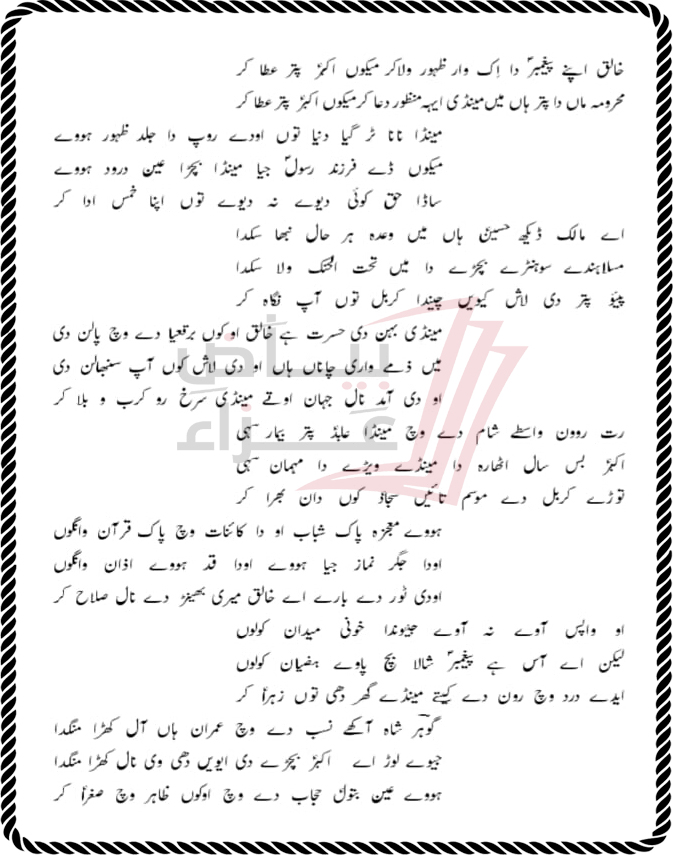 خالق اپنے پیغمبرؐ دا اِک وار ظہور ولا کر میکوں اکبرؑ پتر عطا کر
محرومہ ماں دا پتر ہاں میں مینڈی ایہہ منظور دعا کر میکوں اکبرؑ پتر عطا کر
مینڈا نانا ٹر گیا دنیا توں اودے روپ دا جلد ظہور ہووے
میکوں ڈے فرزند رسولؐ جیا مینڈا بچڑا عین درود ہووے
ساڈا حق کوئی دیوے نہ دیوے توں اپنا خمس ادا کر
اے مالک ڈیکھ حسینؑ ہاں میں وعدہ ہر حال نبھا سکدا
مسلاہندے سوہنڑے بچڑے دا میں تحت الحنک ولا سکدا
پیئو پتر دی لاش کیویں چیندا کربل توں آپ نگاہ کر
مینڈی بہن دی حسرت ہے خالق اوکوں برقعیا دے وچ پالن دی
میں ذمے واری چاناں ہاں او دی لاش کوں آپ سنبھالن دی
او دی آمد نال جہان اوتے مینڈی سرخ رو کرب و بلا کر
رت روون واسطے شام دے وچ مینڈا عابدؑ پتر بیمار سہی
اکبرؑ بس سال اٹھارہ دا مینڈے ویڑے دا مہمان سہی
توڑے کربل دے موسم تائیں سجادؑ کوں دان بھرا کر
ہووے معجزہ پاک شباب او دا کائنات وچ پاک قرآن وانگوں
اودا جگر نماز جیا ہووے اودا قد ہووے اذان وانگوں
اودی ٹور دے بارے اے خالق میری بھینڑ دے نال صلاح کر
او واپس آوے نہ آوے جیوندا خونی میدان کولوں
لیکن اے آس ہے پیغمبرؐ شالا بچ پاوے ہضیان کولوں
ایدے درد وچ رون دے کیتے مینڈے گھر دھی توں زہراؑ کر
گوہر شاہ آکھے نسب دے وچ عمران ہاں آل کھڑا منگدا
جیوے لوڑ اے اکبرؑ بچڑے دی ایویں دھی وی نال کھڑا منگدا
ہووے عین بتولؑ حجاب دے وچ اوکوں ظاہر وچ صغراؑ کر
بیاض
عزاء